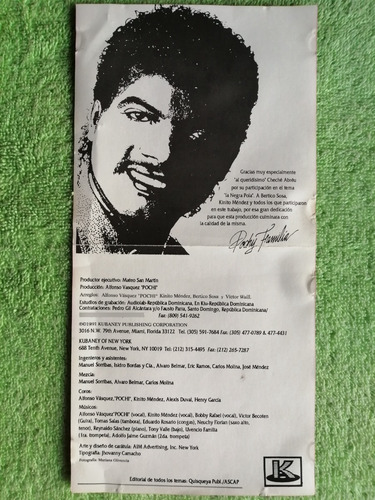 Gracias muy especialmente
"al queridísimo" Cheché Abréu
por su participación en el tema
"la Negra Pola". A Bertico Sosa,
Kinito Méndez y todos los que participaron
en este trabajo, por esa gran dedicación
para que esta producción culminara con
la calidad de la misma.
Pochy Familia
Productor ejecutivo: Mateo San Martín
Producción: Alfonso Vásquez "POCHI"
Arreglos: Alfonso Vásquez "POCHI" Kinito Méndez, Bertico Sosa y Víctor Waill.
Estudios de grabación: Audiolab-República Dominicana, En Kiu-República Dominicana
Contrataciones: Pedro Gil Alcántara y/o Fausto Faria, Santo Domingo, República Dominicana/
Fax (809) 541-9262
KUBANEY PUBLISHING CORPORATION
3016 N.W. 79th Avenue, Miami, Florida 33122 Tel: (305) 591-7684 Fax: (305) 477-0789 & 477-4431
KUBANEY OF NEW YORK
688 Tenth Avenue, New York, NY 10019 Tel: (212) 315-4495 Fax: (212) 265-7287
Ingenieros y asistentes:
Manuel Sorribas, Isidro Bordas y Cía., Alvaro Beimar, Eric Ramos, Carlos Molina, José Méndez
Mezcla:
Manuel Sorribas, Alvaro Beimar, Carlos Molina
Coros:
Alfonso Vásquez,"POCHI", Kinito Méndez, Alexis Duval, Henry García
Músicos:
Alfonso Vásquez"POCHI" (vocal), Kinito Méndez (vocal), Bobby Rafael (vocal), Víctor Becoten
(Guira), Tomas Salas (tambora), Eduardo Rosario (congas), Nouchy Florian (saxo alto,
tenor), Reynaldo Sánchez (piano), Tony Valle (bajo), Elvencio Familia
(1ra. trompeta), Adolfo Jaime Guzmán (2da. trompeta)
Arte y diseño de carátula: AIM Advertising, Inc. New York
Tipografía: Jhovanny Camacho
Fotografía: Mariano
Editorial de todos los temas: Quisqueya Publ./ASCAP
K